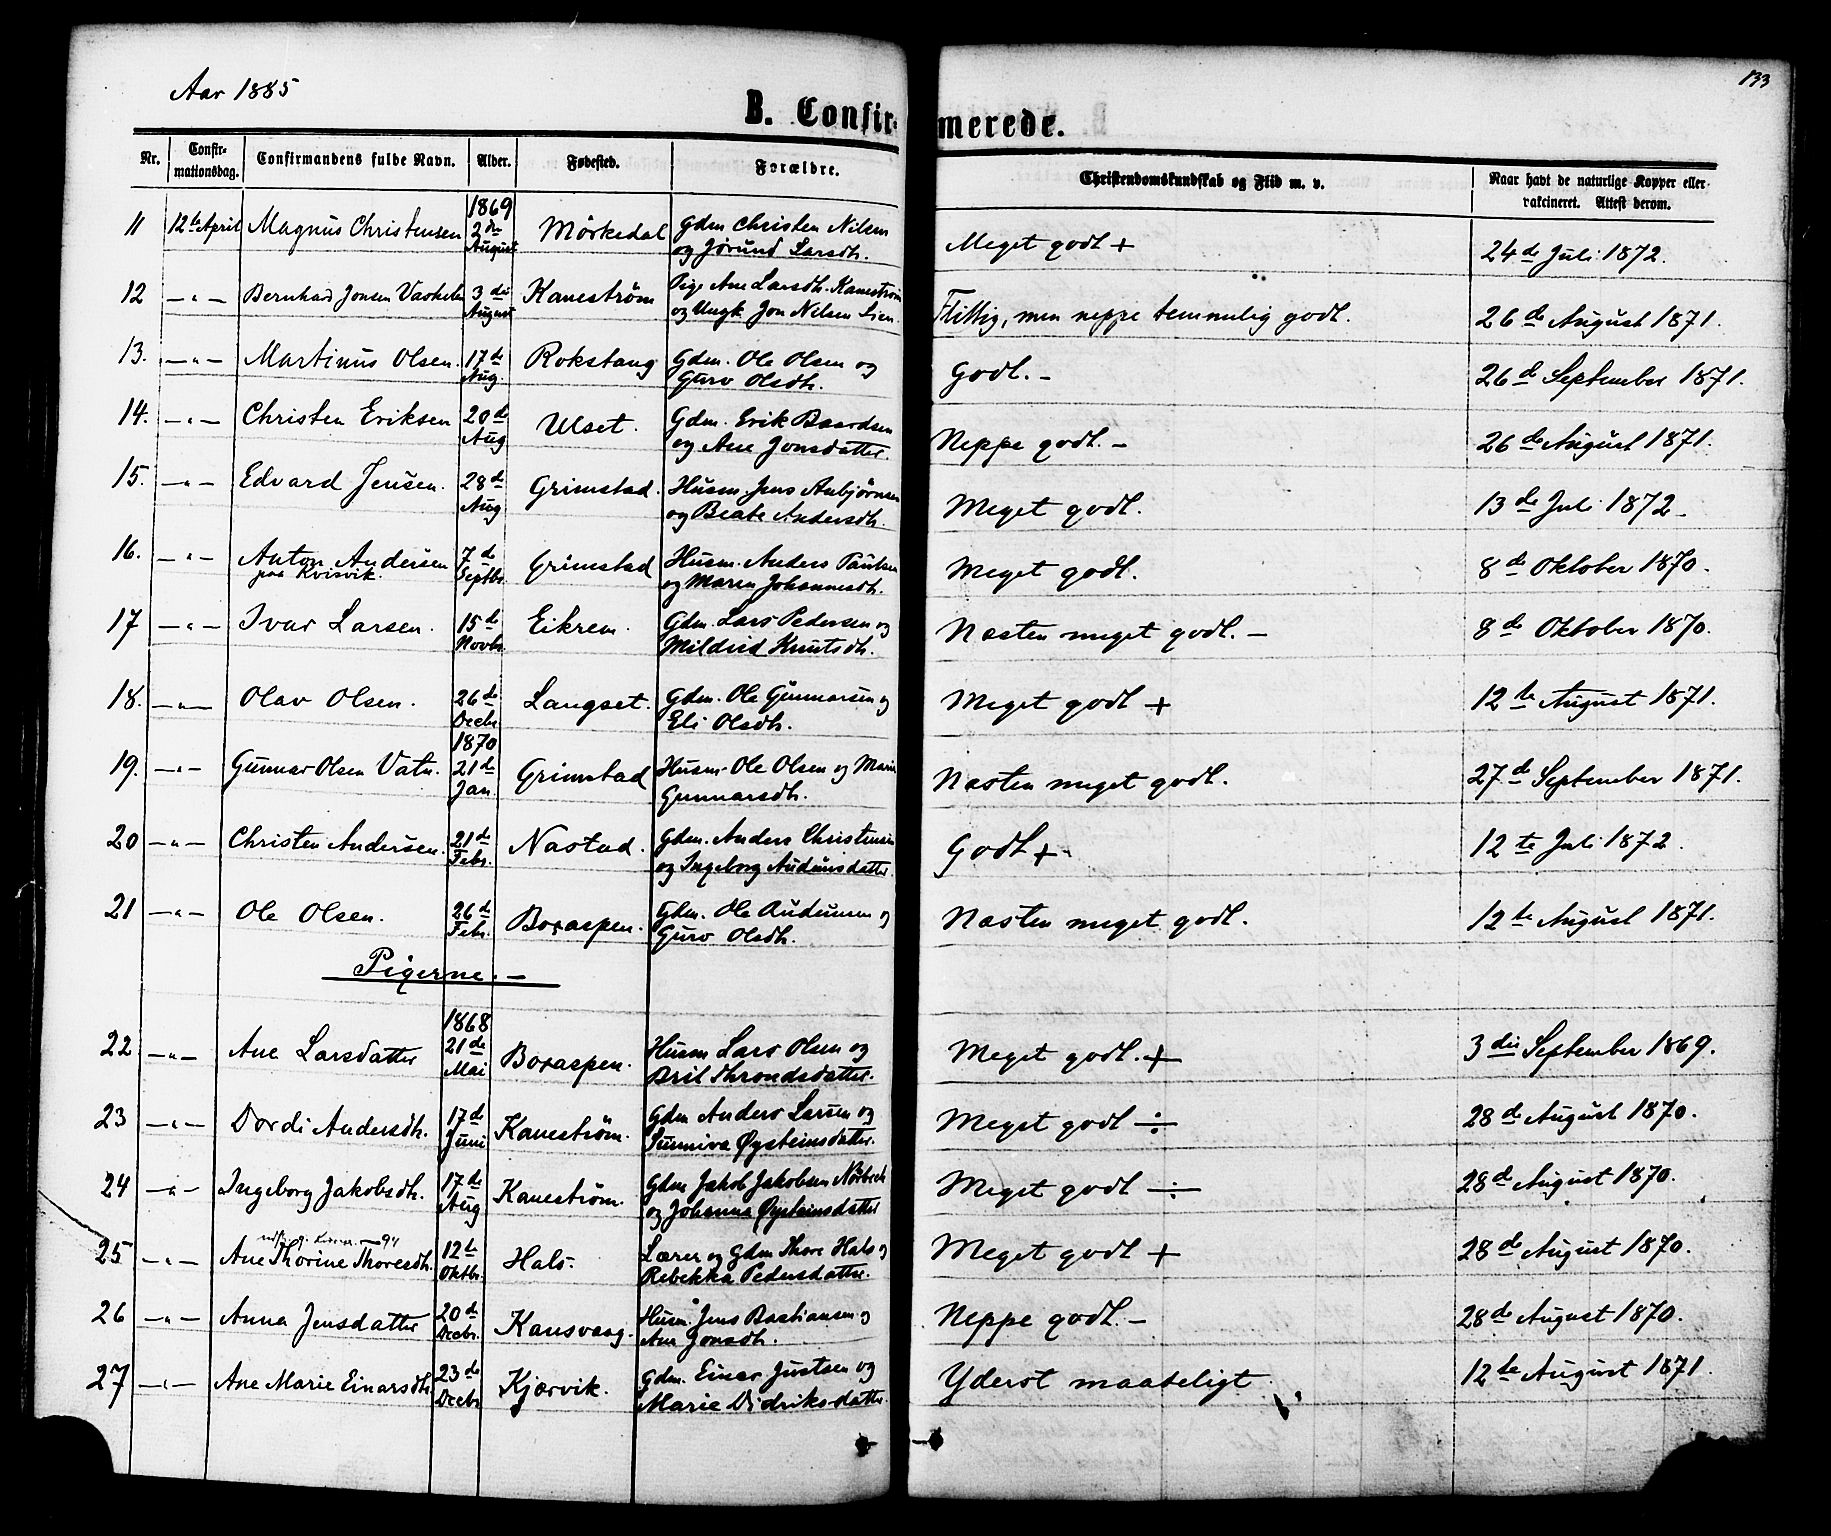 Aar 1885
133
B. Confirmerede.
Nr. Confirmationsdag. Confirmandens fulde Navn. Alder. Fødested. Forældre. Christendomskundskab og Flid m. v. Naar havt de naturlige Kopper eller vakcineret. Attest derom.
11 12te April Magnus Christensen 1869 2den August Mörkedal Gdm Christen Nilsen og Jørund Larsdtr. Meget godt + 24de Juli 1872.
12 — " — Bernhard Jonsen 3die August Kaneström Pige Ane Larsdtr. Kaneström og Ungk Jon Nilsen Lien. Flittig, men neppe temmelig godt. 26de August 1871.
13. — " — Martinus Olsen. 17de Aug. Rokstang Gdm. Ole Olsen og Guro Olsdtr. Godt. - 26de September 1871.
14. — " — Christen Eriksen 20de Aug Ulset. Gdm. Erik Baardsen og Ane Jonsdatter. Neppe godt. - 26de August 1871.
15. — " — Edvard Jensen. 28de Aug Grimstad. Husm. Jens Anbjørnsen og Beate Andersdtr. Meget godt. 13de Juli 1872 -
16. — " — Anton Andersen paa Kvisvik. 7de Septbr. Grimstad Husm. Anders Paulsen og Maren Johannesdtr. Meget godt. 8de Oktober 1870.
17 — " — Ivar Larsen. 15de Novbr. Eikrem. Gdm. Lars Pedersen og Mildrid Knutsdtr. Næsten meget godt. - 8de Oktober 1870.
18. — " — Olav Olsen. 26de Decbr. Langset. Gdm. Ole Gunnarsen og Eli Olsdtr. Meget godt + 12te August 1871.
19. — " — Gunnar Olsen Vatn. 1870 21de Jan. Grimstad Husm. Ole Olsen og Marie Gunnarsdtr. Næsten meget godt. 27de September 1871.
20 — " — Christen Andersen. 21de Febr. Nastad. Gdm. Anders Christensen og Ingeborg Audunsdatter. Godt + 12te Juli 1872.
21 — " — Ole Olsen. 26de Febr. Boraspen. Gdm. Ole Audunsen og Guro Olsdtr. Næsten meget godt. 12te August 1871.
Pigerne. -
22 — " — Ane Larsdatter 1868 21de Mai Boraspen. Husm Lars Olsen og Brit Throndsdatter. Meget godt. + 3die September 1869.
23 — " — Dordi Andersdtr. 17de Juni Kaneström. Gdm Anders Larsen og Sunniva Øysteinsdatter. Meget godt ÷ 28de August 1870.
24 — " — Ingeborg Jakobsdtr. 17de Aug Kaneström. Gdm Jakob Jakobsen og Johanna Øysteinsdatter Meget godt ÷ 28de August 1870.
25 — " — Ane Thorine Thoresdtr. 12te Oktbr. Hals. Lærer og Gdm Thore Hals og Rebekka Pedersdatter. Meget godt + 28de August 1870.
26 — " — Anna Jensdatter 20de Decbr. Kansvaag. Husm. Jens Bastiansen og Ane Jonsdtr. Neppe godt. - 28de August 1870.
27 — " — Ane Marie Einarsdtr. 23de Decbr. Kjørvik. Gdm. Einar Justsen og Marie Didriksdatter. Yderst maadeligt. 12te August 1871.